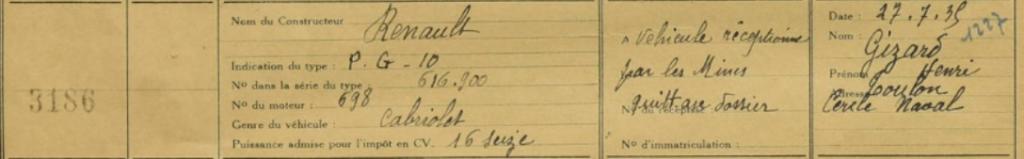 3186
Nom du Constructeur Renault
Indication du type : P. G - 10
No dans la série du type 616.900
No du moteur : 698
Genre du véhicule : Cabriolet
Puissance admise pour l'impôt en CV. 16 seize
véhicule réceptionné
par les Mines
dossier
No d'immatriculation :
Date : 27.7.35
1227
Nom : Gizard
Prénom Henri
Adresse Toulon
Cercle Naval